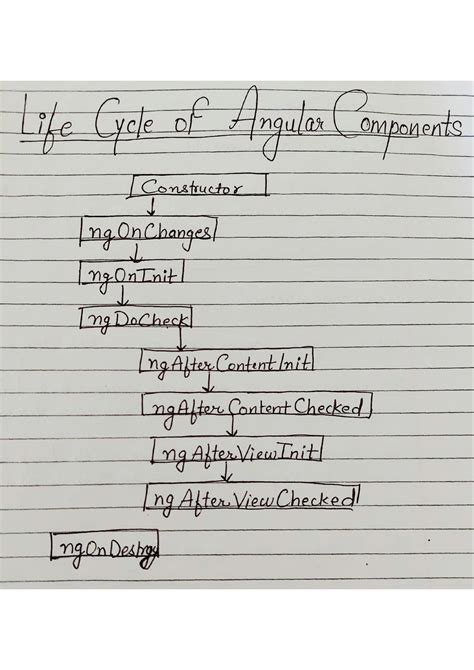 Life Cycle of Angular Components
Constructor
ngOnChanges
ngOnInit
ngDoCheck
ngAfterContentInit
ngAfterContentChecked
ngAfterViewInit
ngAfterViewChecked
ngOnDestroy